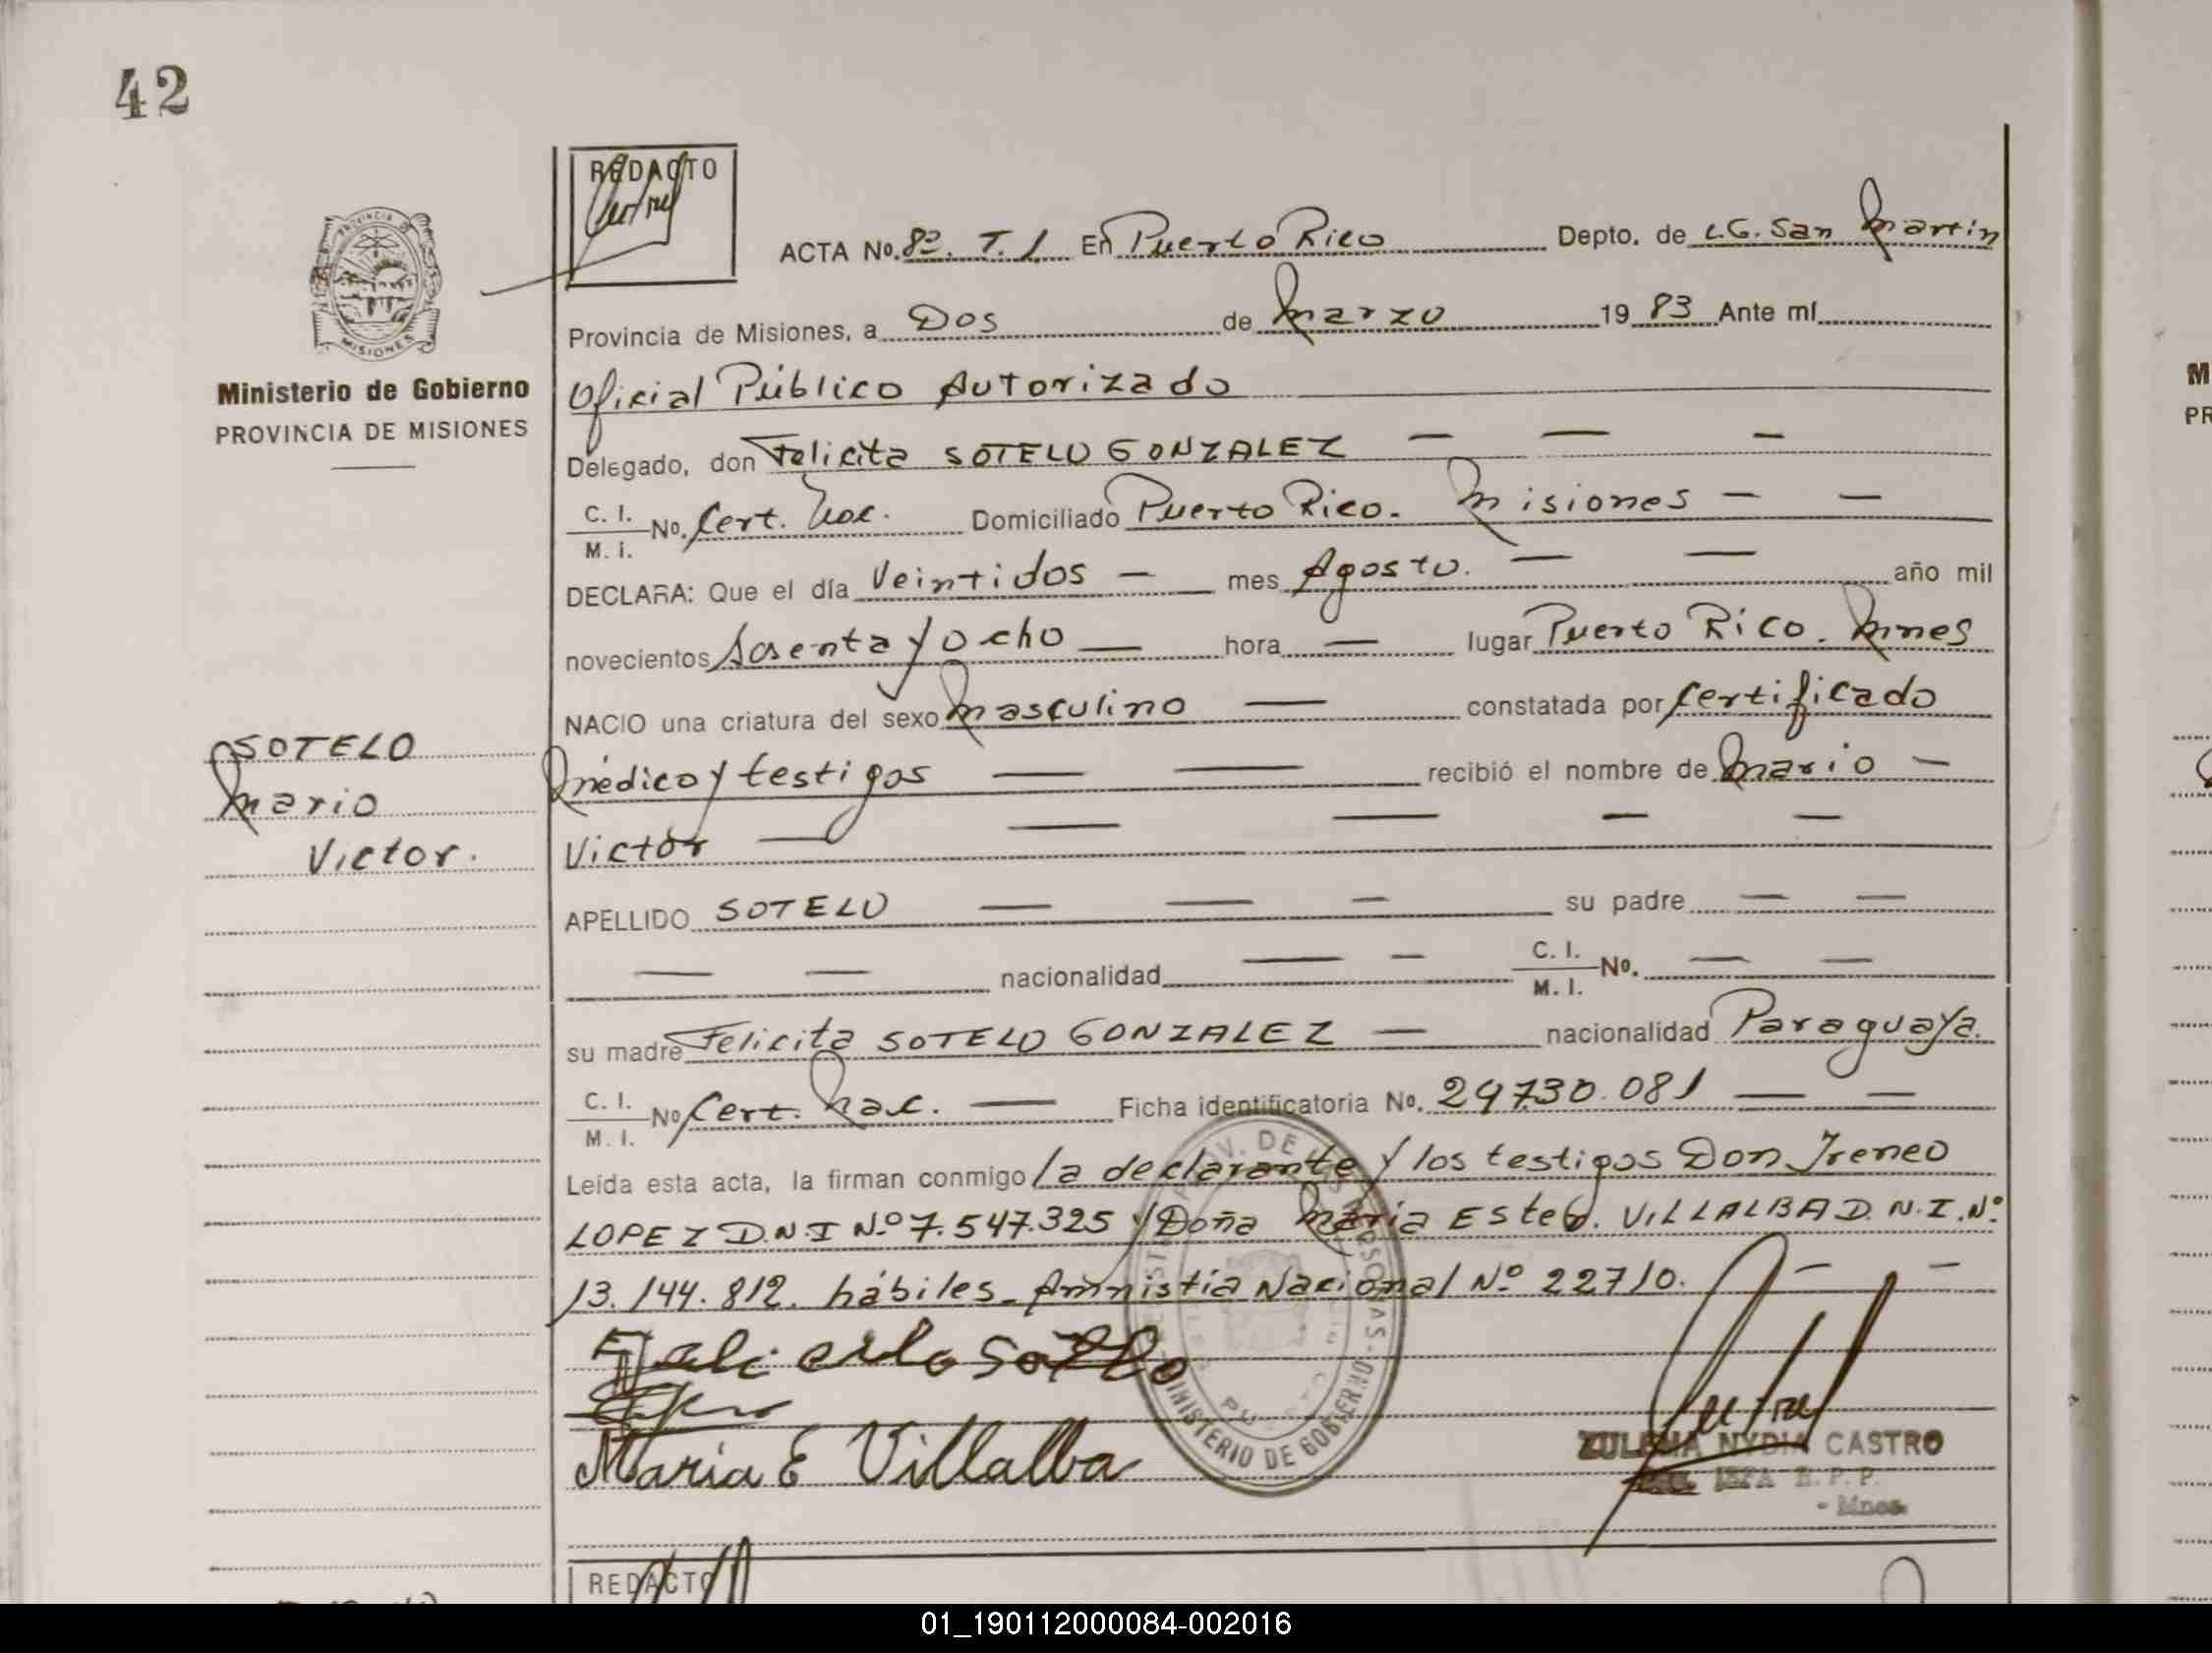 42
REDACTO
ACTA No. 82. T. 1 En Puerto Rico Depto. de L.G. San Martín
Provincia de Misiones, a Dos de Marzo 1983 Ante mí
Ministerio de Gobierno
PROVINCIA DE MISIONES
MISIONES
Oficial Público Autorizado
Delegado, don Felicita SOTELO GONZALEZ — — —
C. I. M. I. No. Cert. Nac. Domiciliado Puerto Rico. Misiones — —
DECLARA: Que el día Veintidos — mes Agosto. — — año mil
novecientos Sesenta y ocho — hora — lugar Puerto Rico. Mnes
NACIO una criatura del sexo Masculino — constatada por Certificado
SOTELO
Médico y testigos — — recibió el nombre de Mario —
Mario
Victor — — — — —
Victor.
APELLIDO SOTELO — — — su padre — —
— — nacionalidad — — C. I. M. I. No. — —
su madre Felicita SOTELO GONZALEZ — nacionalidad Paraguaya.
C. I. M. I. No Cert. Nac. — Ficha identificatoria No. 29730.081 — —
Leída esta acta, la firman conmigo la declarante y los testigos Don Ireneo
LOPEZ D.N.I Nº 7.547.325 y Doña María Ester. VILLALBA D.N.I.Nº
13.144.812. hábiles. Amnistía Nacional Nº 22710. — —
MINISTERIO DE GOBIERNO
María E Villalba
ZULEMA NYDIA CASTRO
R. P. P.
- Mnes.
REDACTO
01_190112000084-002016